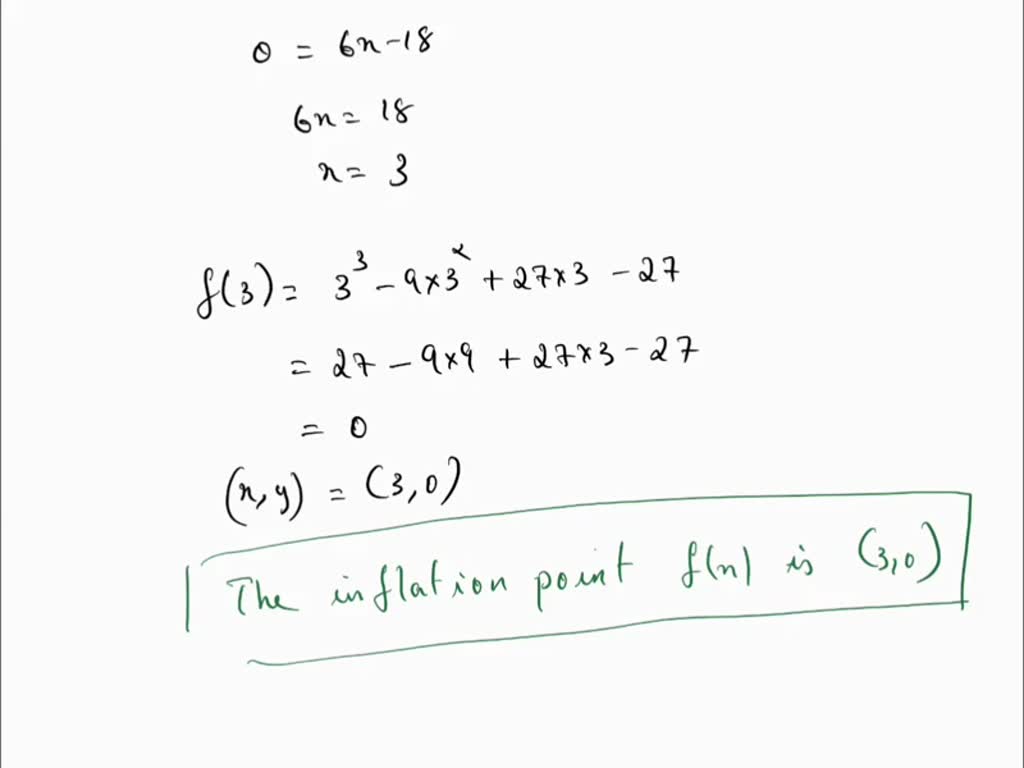 0 = 6x-18
6x= 18
x= 3
f(3)= 3³ - 9×3² + 27×3 - 27
= 27 - 9×9 + 27×3 - 27
= 0
(x,y) = (3,0)
The inflation point f(x) is (3,0)